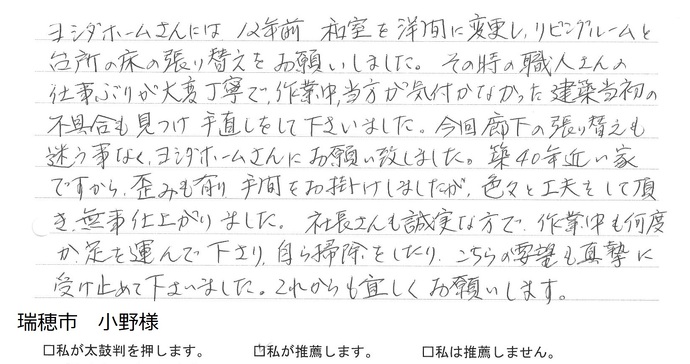 ヨシダホームさんには 12年前 和室を洋間に変更し、リビングルームと
台所の床の張り替えをお願いしました。その時の職人さんの
仕事ぶりが大変丁寧で、作業中、当方が気付かなかった建築当初の
不具合も見つけ手直しをして下さいました。今回廊下の張り替えも
迷う事なく、ヨシダホームさんにお願い致しました。築40年近い家
ですから、歪みも有り、手間をお掛けしましたが、色々と工夫をして頂
き、無事仕上がりました。社長さんも誠実な方で、作業中も何度
か足を運んで下さり、自ら掃除をしたり、こちらの要望も真摯に
受け止めて下さいました。これからも宜しくお願いします。
瑞穂市 小野様
□私が太鼓判を押します。 ☑私が推薦します。 □私は推薦しません。